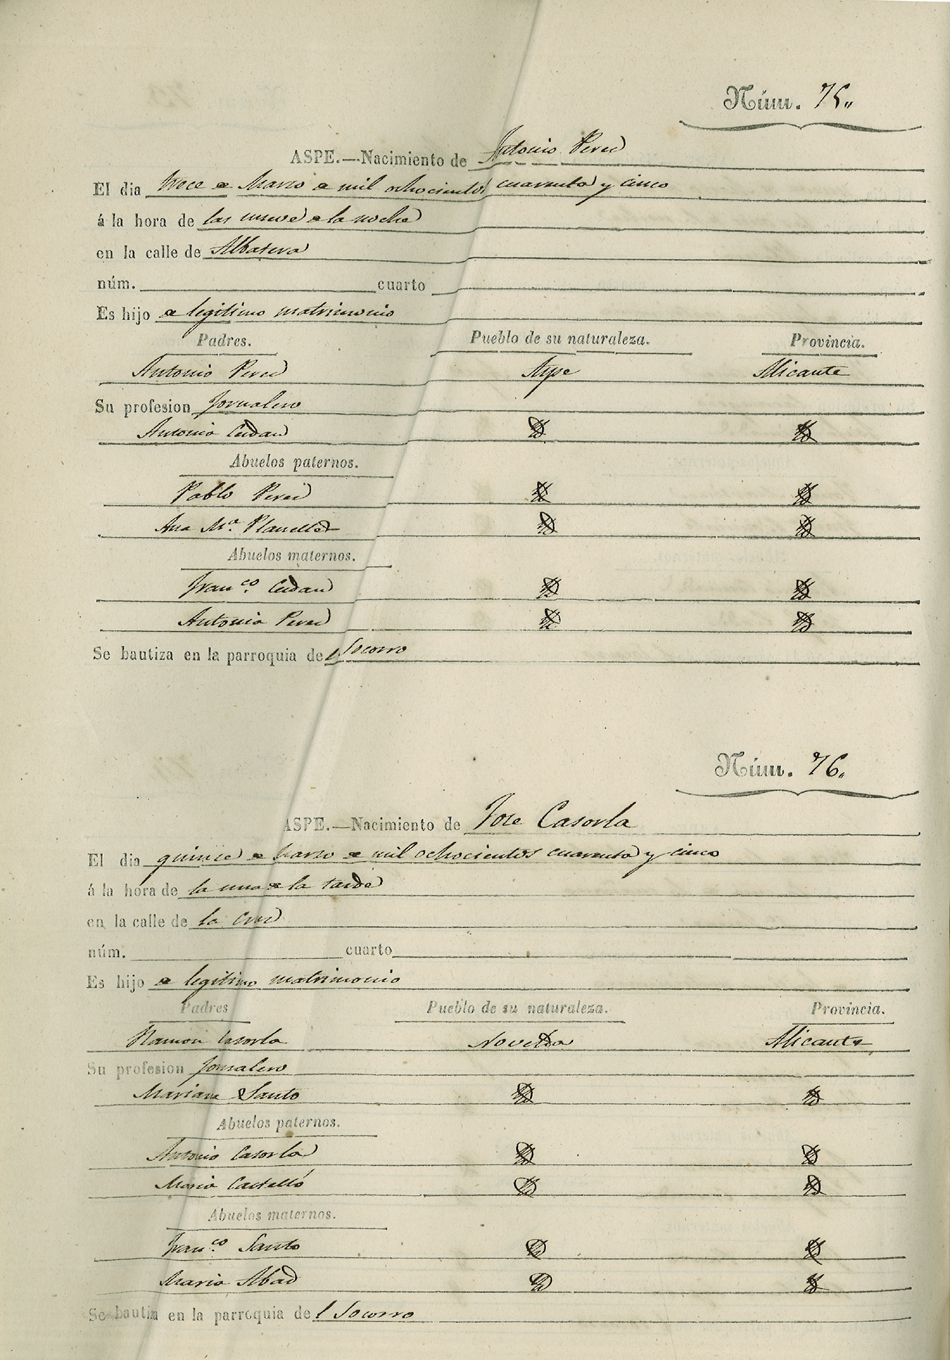 Núm. 75.
ASPE.—Nacimiento de Antonio Perez
El dia trece de Marzo de mil ochocientos cuarenta y cinco
á la hora de las nueve de la noche
en la calle de
núm. cuarto
Es hijo de legitimo matrimonio
Padres. Pueblo de su naturaleza. Provincia.
Antonio Perez Aspe Alicante
Su profesion Jornalero
Antonia
Abuelos paternos.
Pablo Perez
Ana Mª. Planelles
Abuelos maternos.
Franco.
Antonia Perez
Se bautiza en la parroquia del Socorro
Núm. 76.
ASPE.—Nacimiento de Jose Casorla
El dia quince de Marzo de mil ochocientos cuarenta y cinco
á la hora de la una de la tarde
en la calle de la Cruz
núm. cuarto
Es hijo de legitimo matrimonio
Padres Pueblo de su naturaleza. Provincia.
Ramon Casorla Novelda Alicante
Su profesion Jornalero
Mariana Santo
Abuelos paternos.
Antonio Casorla
Maria Castelló
Abuelos maternos.
Franco. Santo
Maria Abad
Se bautiza en la parroquia del Socorro